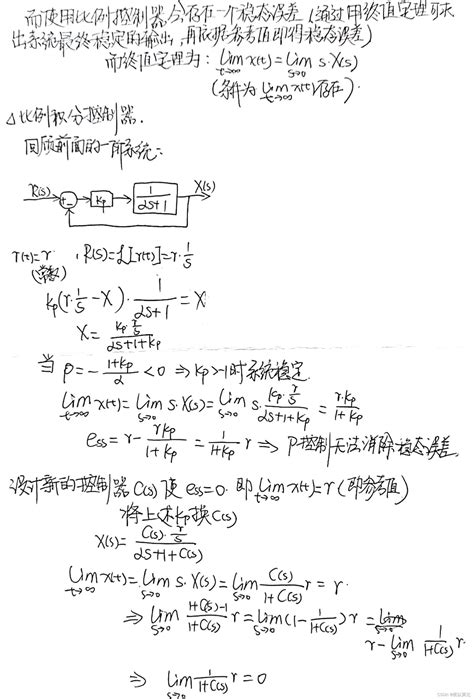 而使用比例控制器会存在一个稳态误差（通过用终值定理可求
出系统最终稳定的输出，再依据参考值即得稳态误差）
而终值定理为：lim t→∞ x(t) = lim s→0 s·X(s)
（条件为 lim t→∞ x(t)存在）
△比例积分控制器.
回顾前面的一阶系统：
R(s) + - Kp 1/(2s+1) X(s)
r(t)=r （常数）, R(s)=L[r(t)]=r·1/s
Kp(r·1/s - X)·1/(2s+1) = X
X = (Kp r/s)/(2s+1+Kp)
当 p = -(1+Kp)/2 < 0 ⇒ Kp>-1时系统稳定
lim t→∞ x(t) = lim s→0 s·X(s) = lim s→0 s·(Kp·r/s)/(2s+1+Kp) = r·Kp/(1+Kp)
ess = r - rKp/(1+Kp) = 1/(1+Kp) r ⇒ P控制无法消除稳态误差.
设计新的控制器 C(s) 使 ess=0. 即 lim t→∞ x(t)=r（即参考值）
将上述Kp换C(s)
X(s) = (C(s)·r/s)/(2s+1+C(s))
lim t→∞ x(t) = lim s→0 s·X(s) = lim s→0 C(s)/(1+C(s)) r = r
⇒ lim s→0 (1+C(s)-1)/(1+C(s)) r = lim s→0 (1 - 1/(1+C(s))) r =
r - lim s→0 1/(1+C(s)) r
⇒ lim s→0 1/(1+C(s)) r = 0